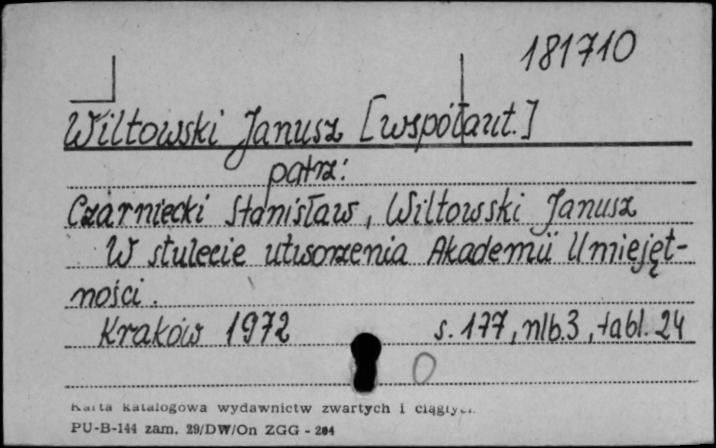 181710
Wiltowski Janusz [współaut.]
patrz:
Czarniecki Stanisław, Wiltowski Janusz
W stulecie utworzenia Akademii Umiejęt-
ności.
Kraków 1972 s. 177, nlb.3, tabl. 24
Karta katalogowa wydawnictw zwartych i ciągłych
PU-B-144 zam. 29/DW/On ZGG - 204